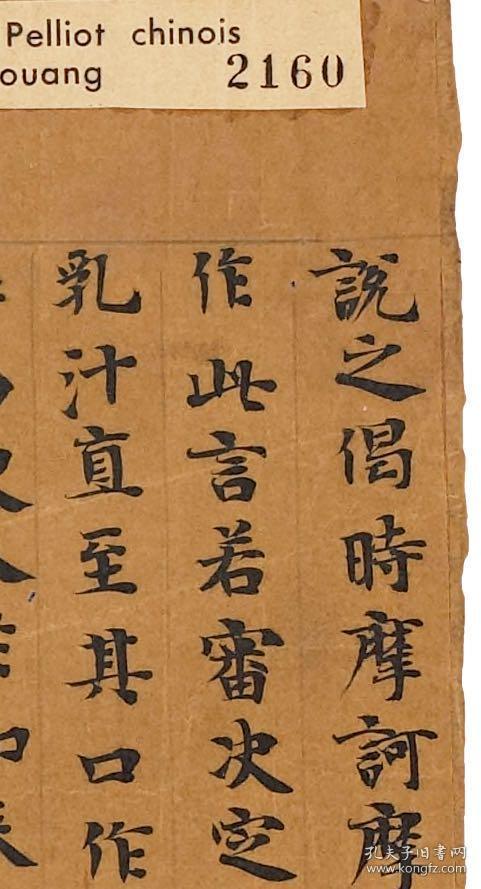 Pelliot chinois
ouang 2160
說之偈時摩訶摩
作此言若審決定
乳汁直至其口作
孔夫子旧书网
www.kongfz.com